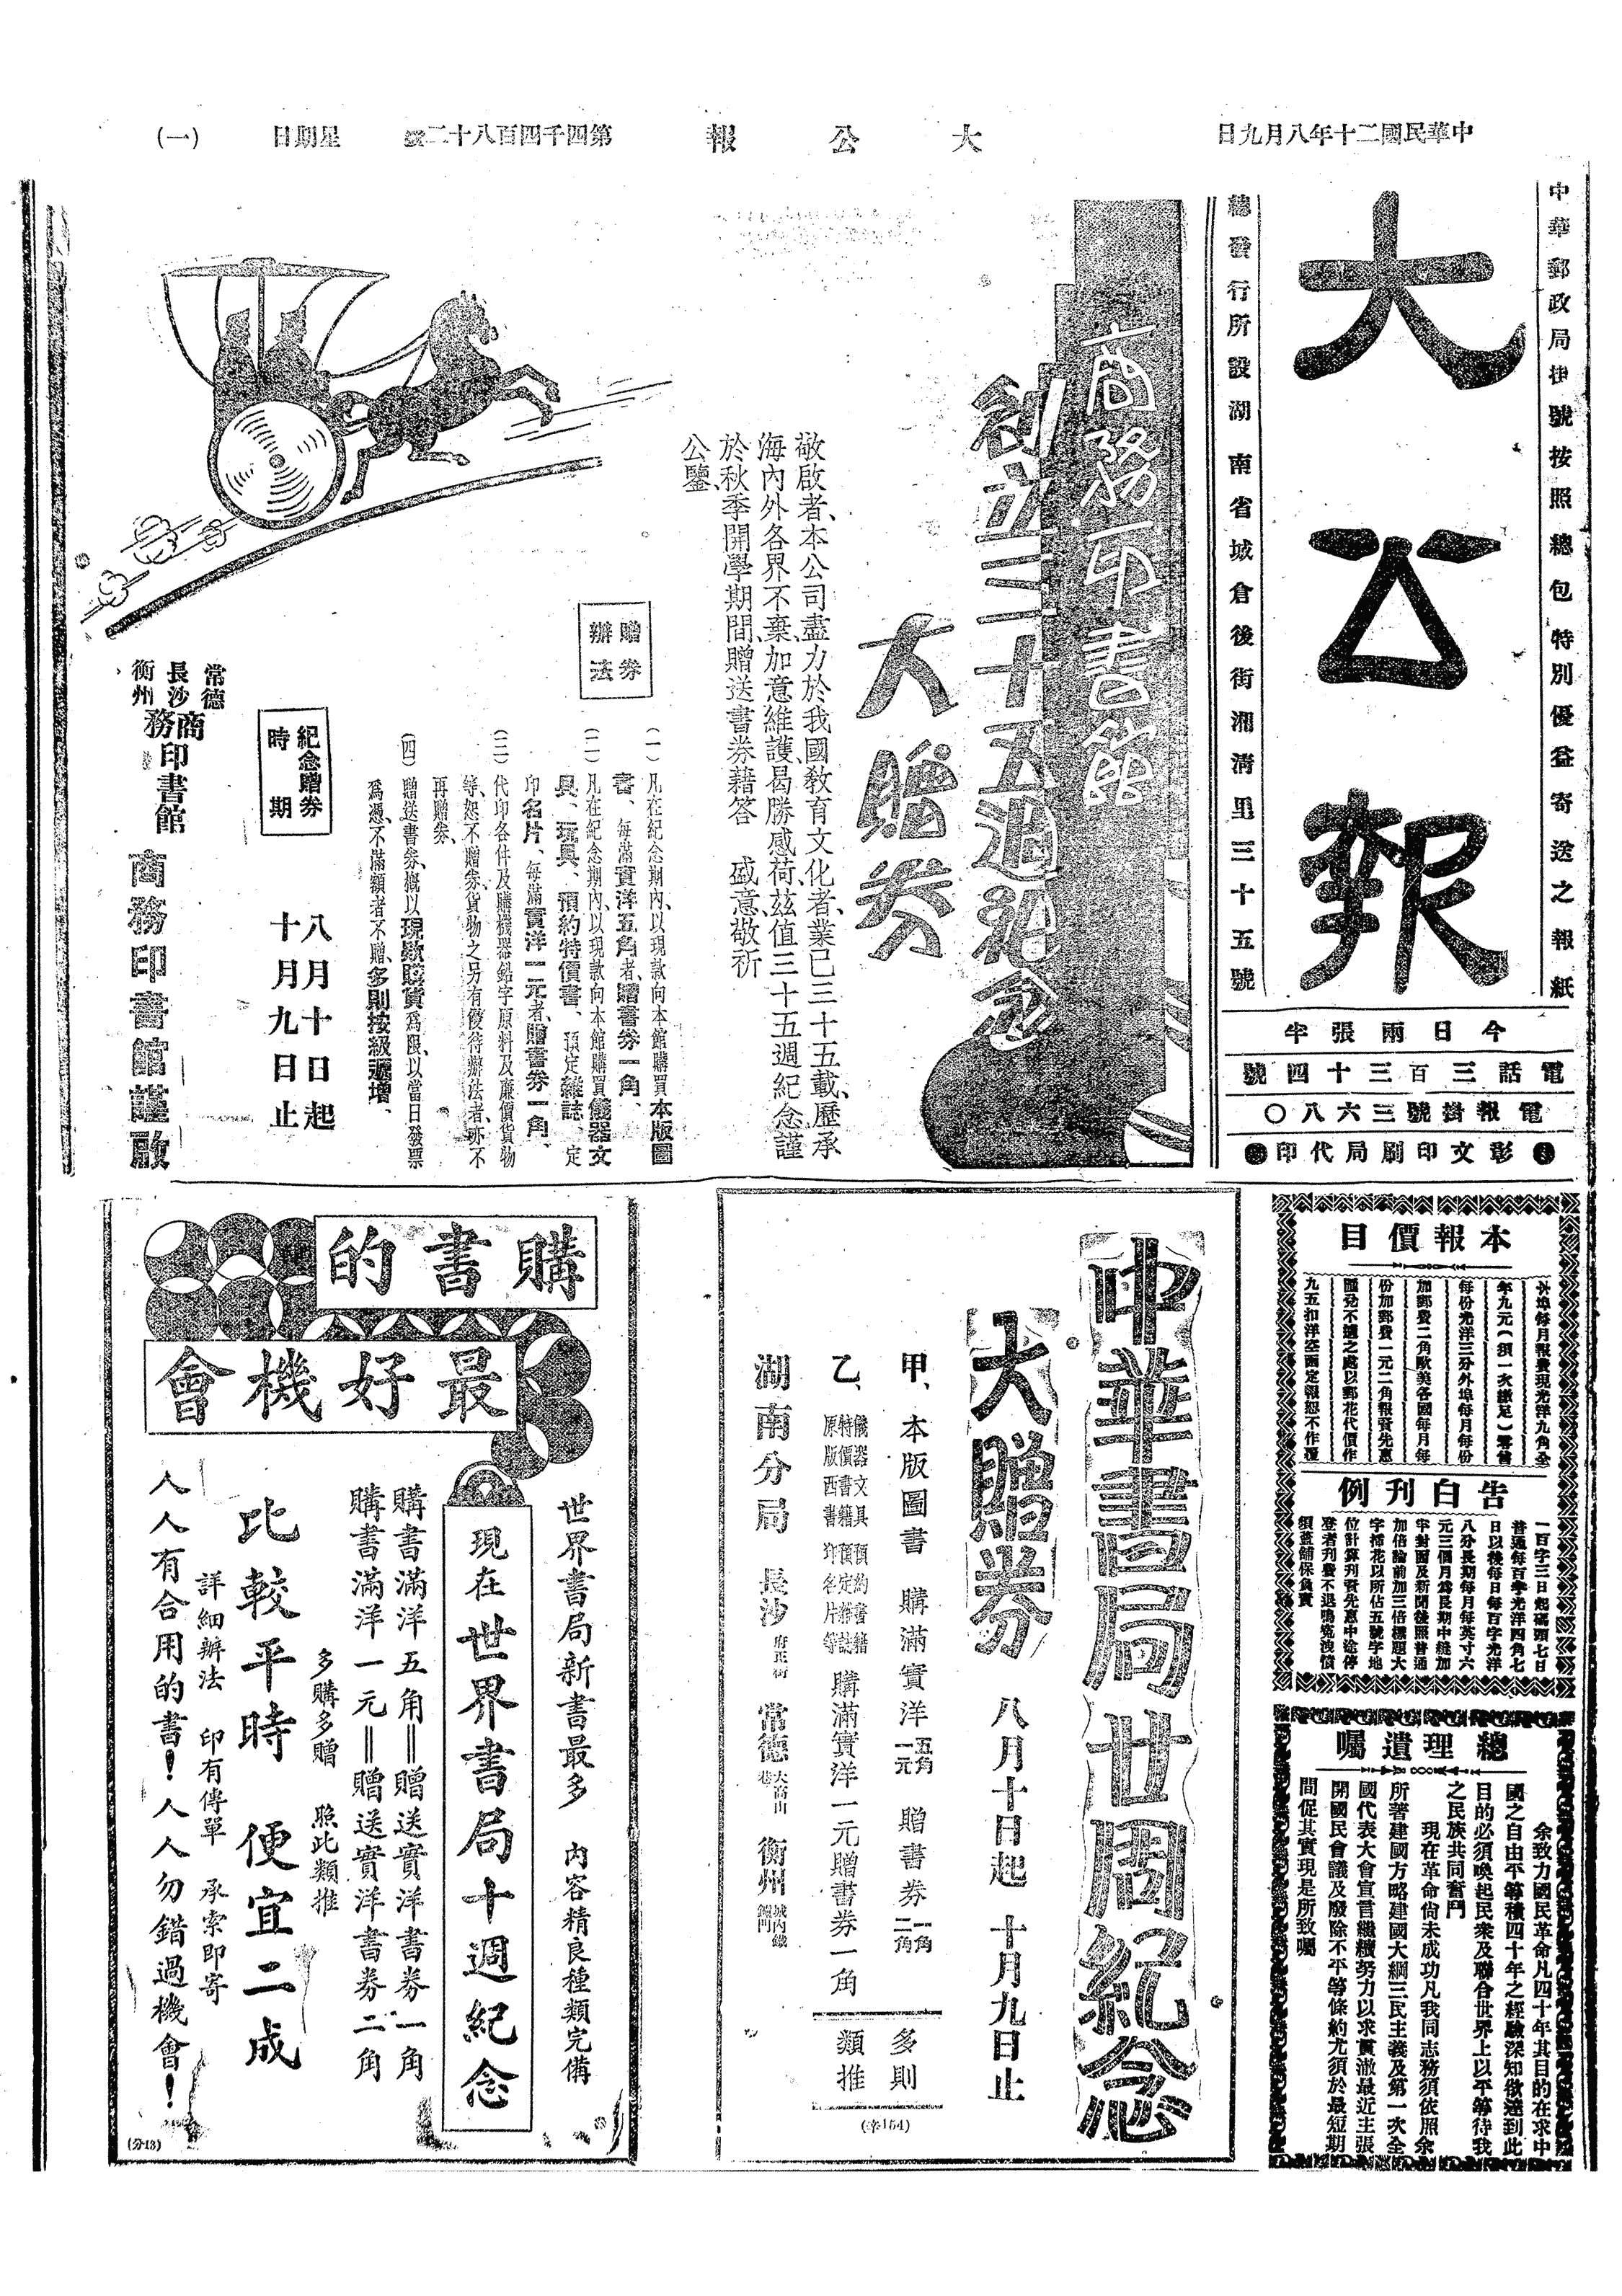 中華民國二十年八月九日
大公報
第四千四百八十二號
星期日
(一)
中華郵政局掛號按照總包特別優益寄送之報紙
大公報
總發行所設湖南省城倉後街湘清里三十五號
今日兩張半
電話三百三十四號
電報掛號三六八〇
彰文印刷局代印
商務印書館
創立三十五週紀念
大贈券
敬啟者、本公司盡力於我國教育文化者、業已三十五載、歷承
海內外各界不棄、加意維護、曷勝感荷、茲值三十五週紀念、謹
於秋季開學期間、贈送書券、藉答　盛意、敬祈
公鑒、
贈券
辦法
(一)凡在紀念期內、以現款向本館購買本版圖
書、每滿實洋五角者、贈書券一角、
(二)凡在紀念期內、以現款向本館購買儀器文
具、玩具、預約特價書、頂定雜誌、定
印名片、每滿實洋一元者、贈書券一角、
(三)代印各件及購機器鉛字原料及廉價貨物
等、恕不贈券、貨物之另有優待辦法者、亦不
再贈券、
(四)贈送書券、概以現款購貨為限、以當日發票
為憑、不滿額者不贈、多則按級遞增、
紀念贈券
時期
八月十日起
十月九日止
常德
長沙
衡州
商務印書館
商務印書館謹啟
本報價目
本埠每月報費現光洋九角全
年九元(須一次繳足)零售
每份光洋三分外埠每月每份
加郵費二角歐美各國每月每
份加郵費一元二角報資先惠
匯兌不通之處以郵花代價作
九五扣洋空函定報恕不作覆
告白刊例
一百字三日起碼頭七日
普通每百字光洋四角七
日以後每日每百字光洋
八分長期每月每英寸六
元三個月為長期中縫加
半封面及新聞後照普通
加倍論前加三倍標題大
字插花以所佔五號字地
位計算刊資先惠中途停
登者刊費不退鳴冤洩憤
須蓋鋪保負責
總理遺囑
余致力國民革命凡四十年其目的在求中
國之自由平等積四十年之經驗深知欲達到此
目的必須喚起民衆及聯合世界上以平等待我
之民族共同奮鬥
現在革命尚未成功凡我同志務須依照余
所著建國方略建國大綱三民主義及第一次全
國代表大會宣言繼續努力以求貫澈最近主張
開國民會議及廢除不平等條約尤須於最短期
間促其實現是所致囑
中華書局廿周紀念
大贈券
八月十日起　十月九日止
甲、本版圖書　購滿實洋五角一元　贈書券一角二角
乙、儀器文具特價書籍原版西書　預約書籍預定雜誌印名片等　購滿實洋一元贈書券一角
多則
類推
湖南分局　長沙府正街　常德大高山巷　衡州城內鐵鑪門
(本154)
購書的
最好機會
世界書局新書最多　內容精良種類完備
現在世界書局十週紀念
購書滿洋五角＝贈送實洋書券一角
購書滿洋一元＝贈送實洋書券二角
多購多贈　照此類推
比較平時　便宜二成
詳細辦法　印有傳單　承索即寄
人人有合用的書！人人勿錯過機會！
(分13)